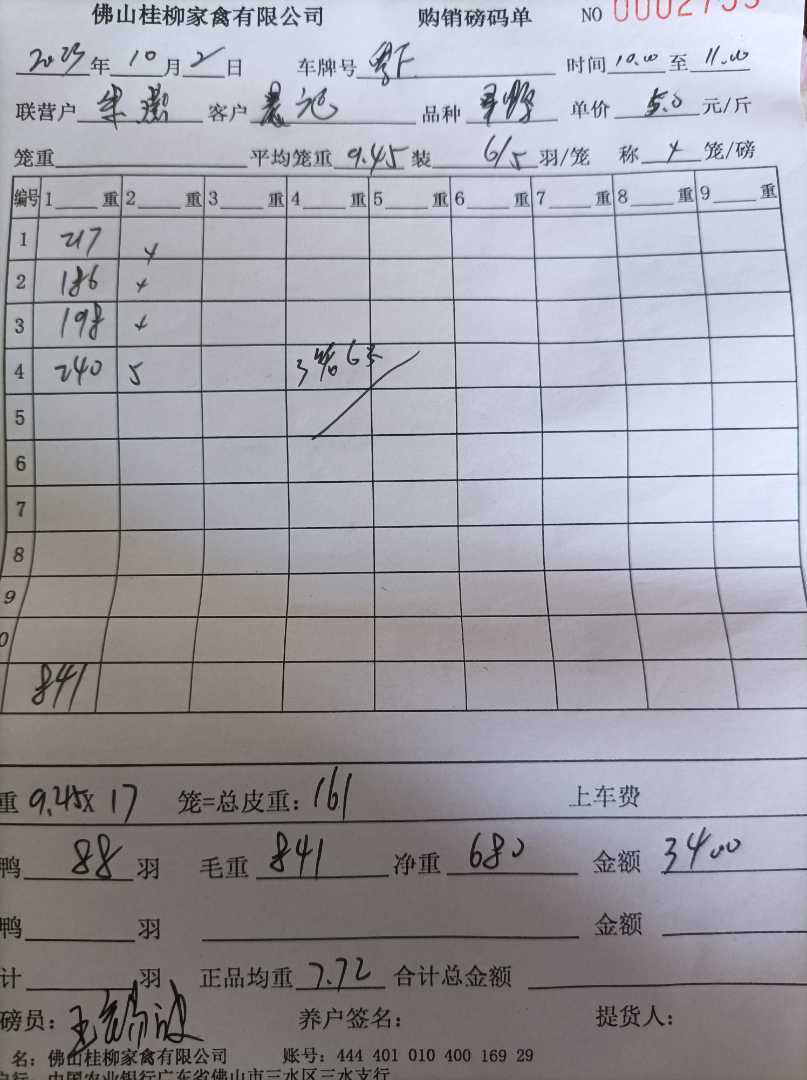 佛山桂柳家禽有限公司 购销磅码单 NO 0002753
2023年10月2日 车牌号 时间10.00至11.00
联营户 客户 品种 单价5.0元/斤
笼重 平均笼重9.45装6/5羽/笼 称4笼/磅
编号 1 重 2 重 3 重 4 重 5 重 6 重 7 重 8 重 9 重
1 217 4
2 186 4
3 198 4
4 240 5 3笼6只
5
6
7
8
9
0
841
重 9.45X17 笼=总皮重：161 上车费
鸭 88 羽 毛重 841 净重 680 金额 3400
鸭 羽 金额
计 羽 正品均重 7.72 合计总金额
磅员： 养户签名： 提货人：
名：佛山桂柳家禽有限公司 账号：444 401 010 400 169 29
户行：中国农业银行广东省佛山市三水区三水支行